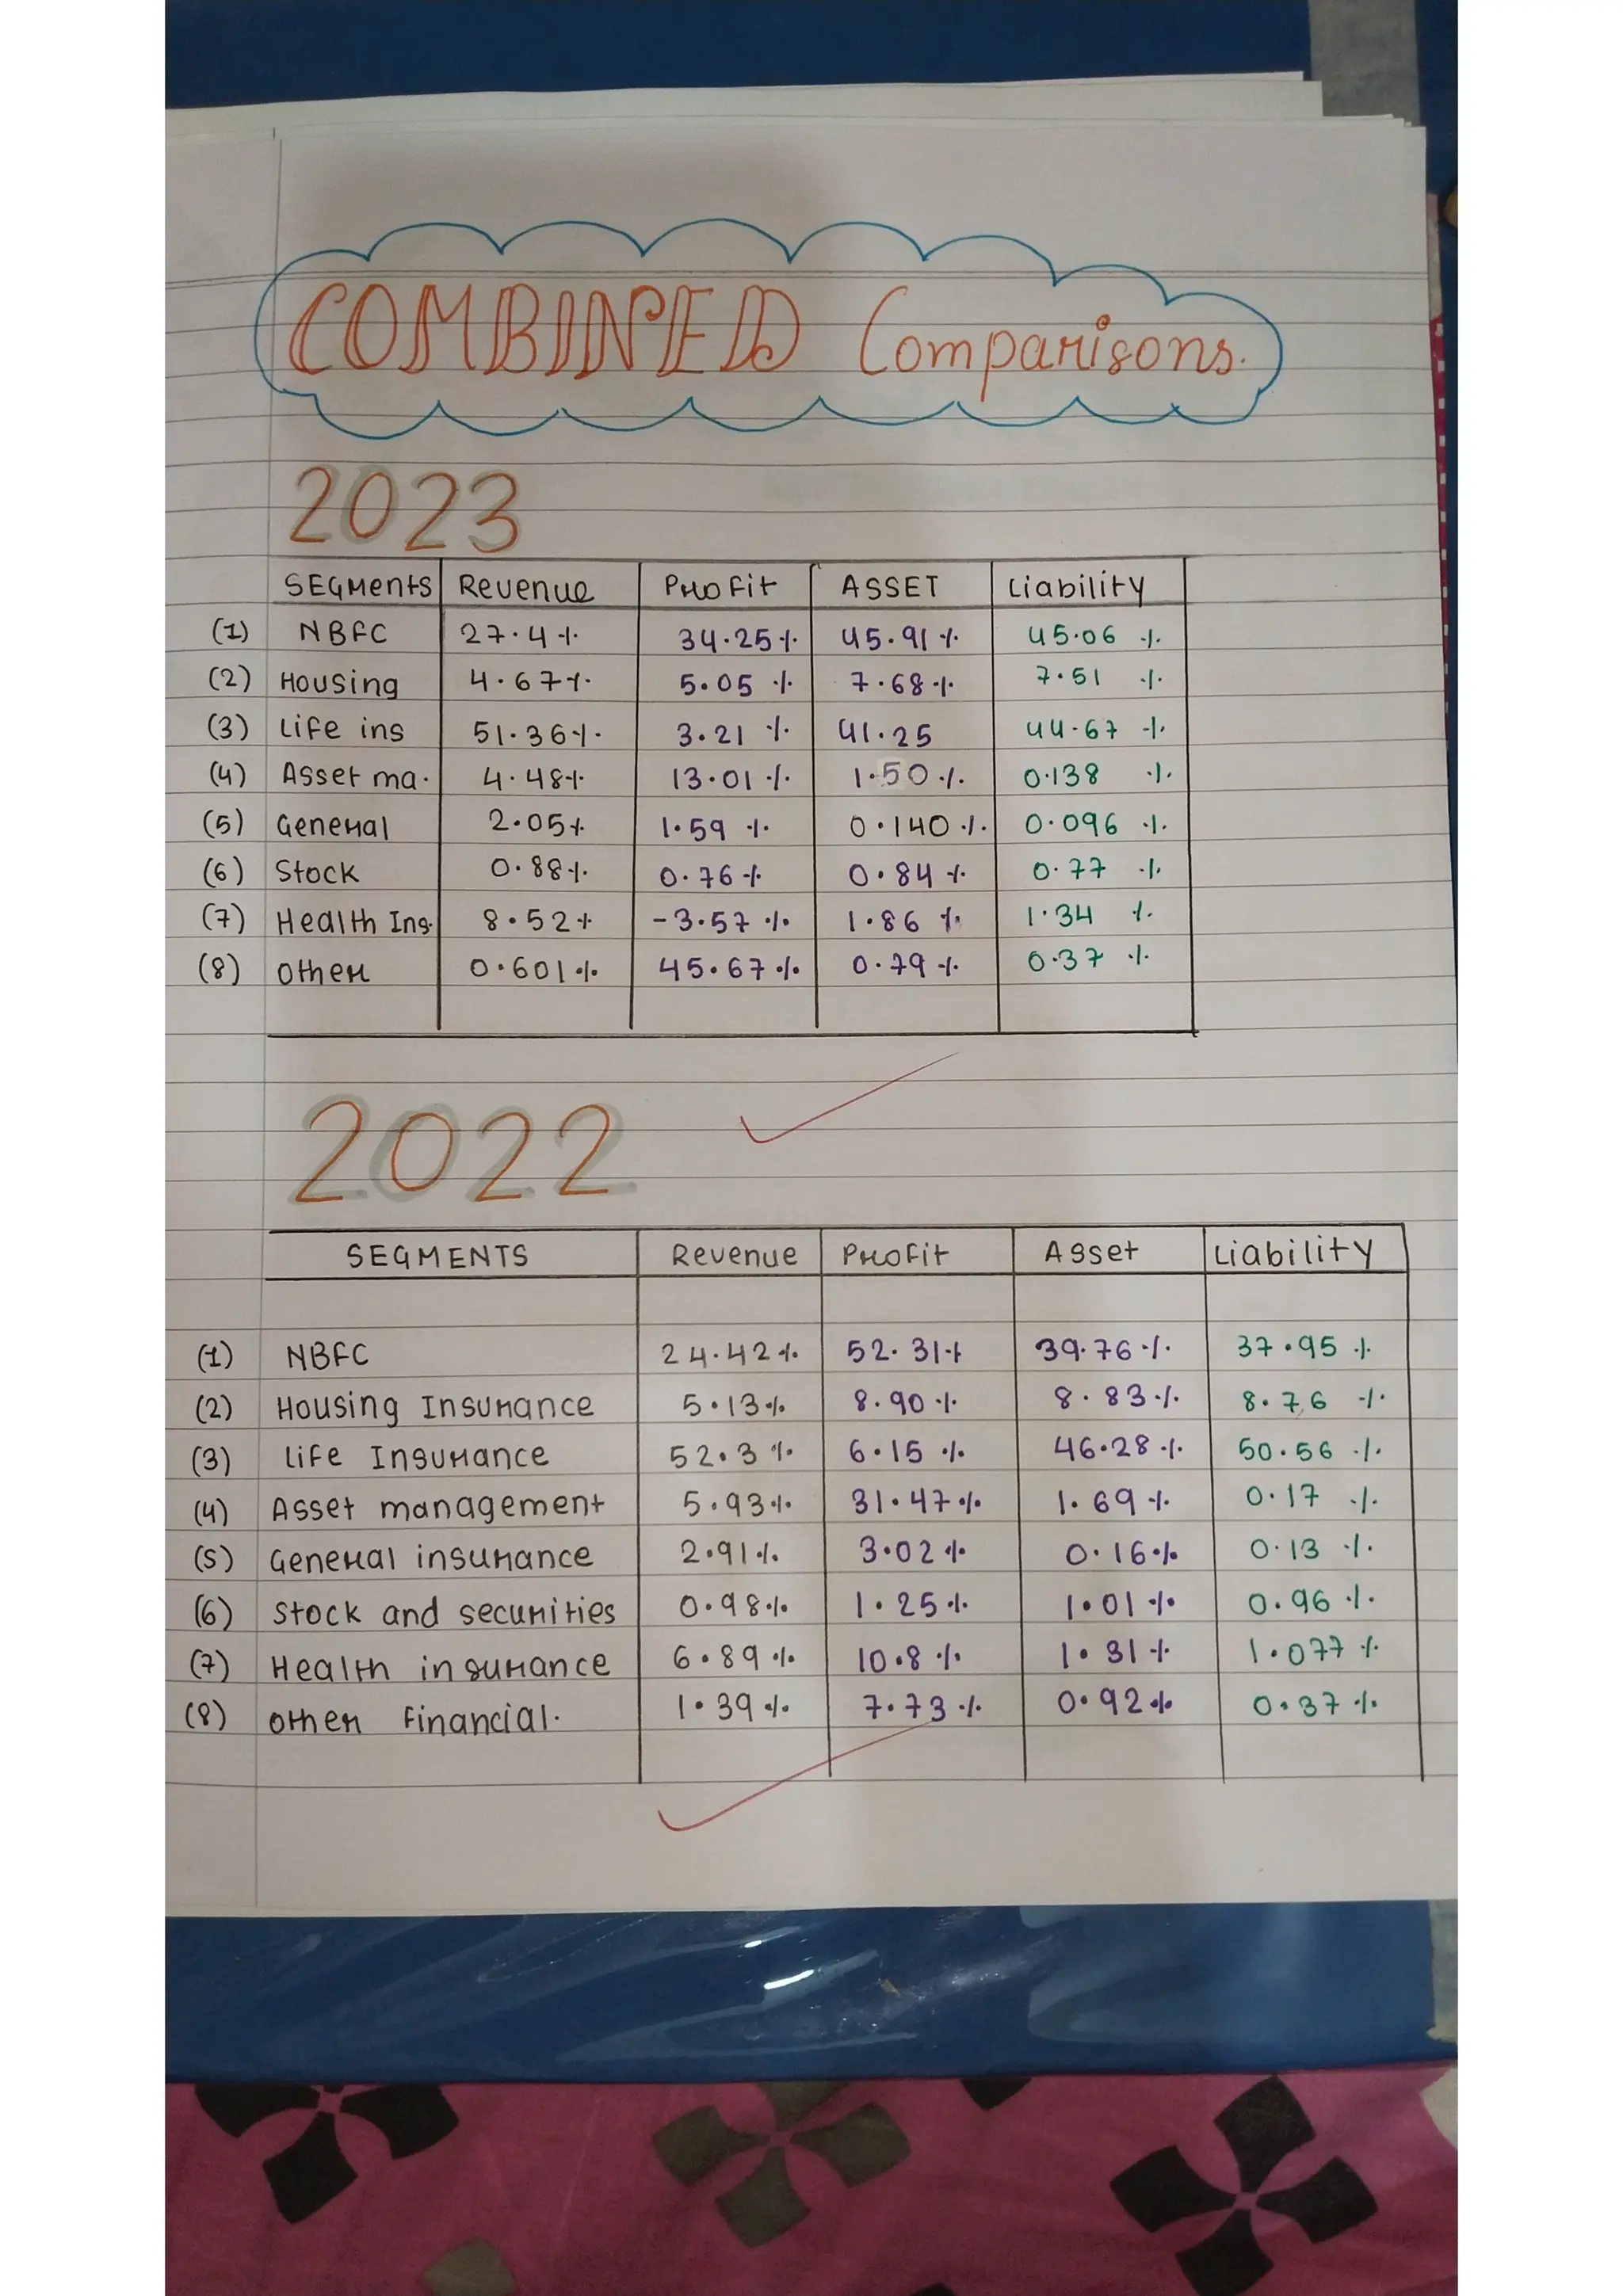 COMBINED Comparisons.
2023
SEGMENTS Revenue Profit ASSET Liability
(1) NBFC 27.4% 34.25% 45.91% 45.06 %
(2) Housing 4.67% 5.05 % 7.68% 7.51 %
(3) Life ins 51.36% 3.21 % 41.25 44.67 %
(4) Asset ma. 4.48% 13.01 % 1.50% 0.138 %
(5) General 2.05% 1.59 % 0.140 % 0.096 %
(6) Stock 0.88% 0.76 % 0.84 % 0.77 %
(7) Health Ins. 8.52% -3.57 % 1.86 % 1.34 %
(8) other 0.601 % 45.67 % 0.79 % 0.37 %
2022
SEGMENTS Revenue Profit Asset Liability
(1) NBFC 24.42% 52.31% 39.76 % 37.95 %
(2) Housing Insurance 5.13% 8.90 % 8.83 % 8.76 %
(3) Life Insurance 52.3 % 6.15 % 46.28 % 50.56 %
(4) Asset management 5.93% 31.47% 1.69 % 0.17 %
(5) General insurance 2.91% 3.02 % 0.16% 0.13 %
(6) Stock and securities 0.98% 1.25% 1.01 % 0.96 %
(7) Health insurance 6.89 % 10.8 % 1.31 % 1.077 %
(8) other financial. 1.39 % 7.73 % 0.92% 0.37 %